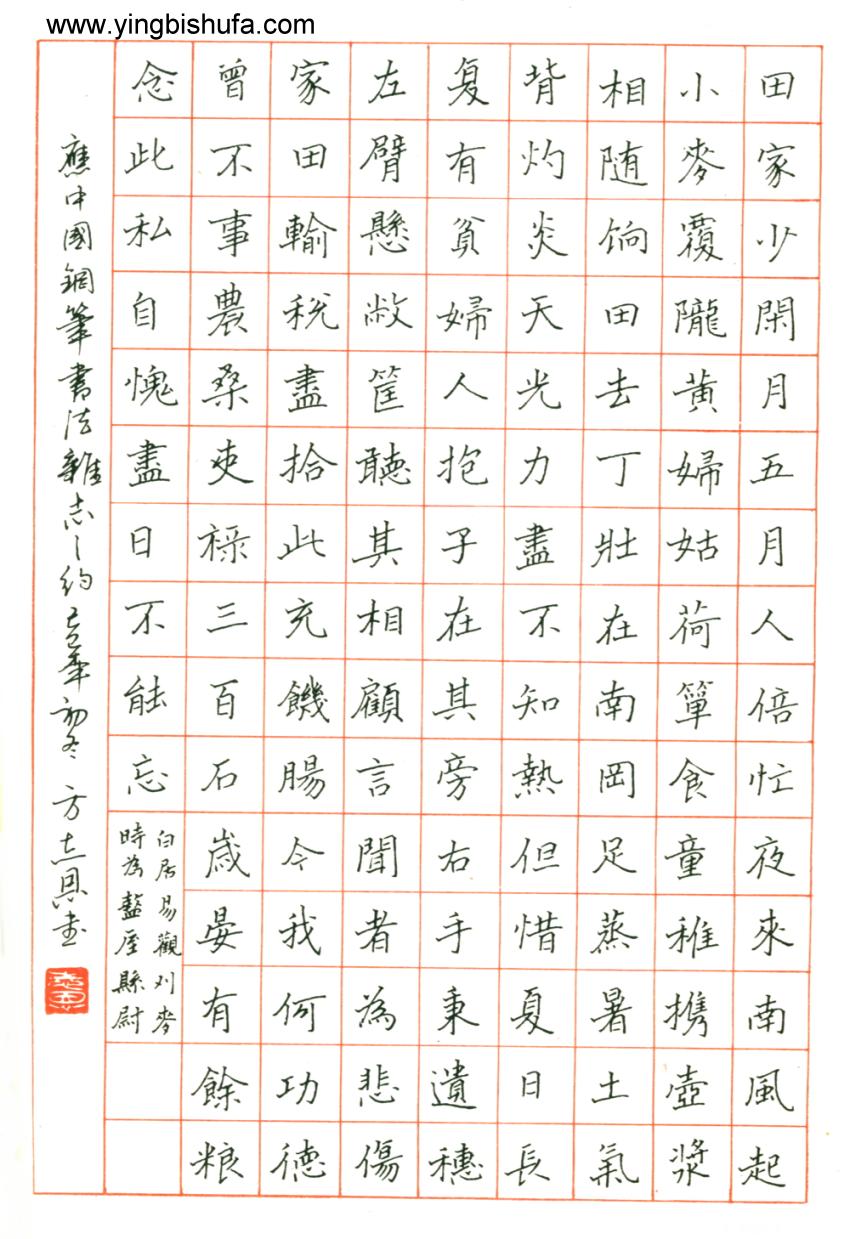 www.yingbishufa.com
田家少閑月五月人倍忙夜來南風起
小麥覆隴黃婦姑荷簞食童稚携壺漿
相随饷田去丁壯在南岡足蒸暑土氣
背灼炎天光力盡不知熱但惜夏日長
复有貧婦人抱子在其旁右手秉遺穗
左臂懸敝筐聽其相顧言聞者為悲傷
家田輸税盡拾此充饑腸今我何功德
曾不事農桑吏祿三百石歲晏有餘粮
念此私自愧盡日不能忘
白居易觀刈麥
時為盩厔縣尉
應中國鋼筆書法雜志之約 年初冬 方志恩书
志恩